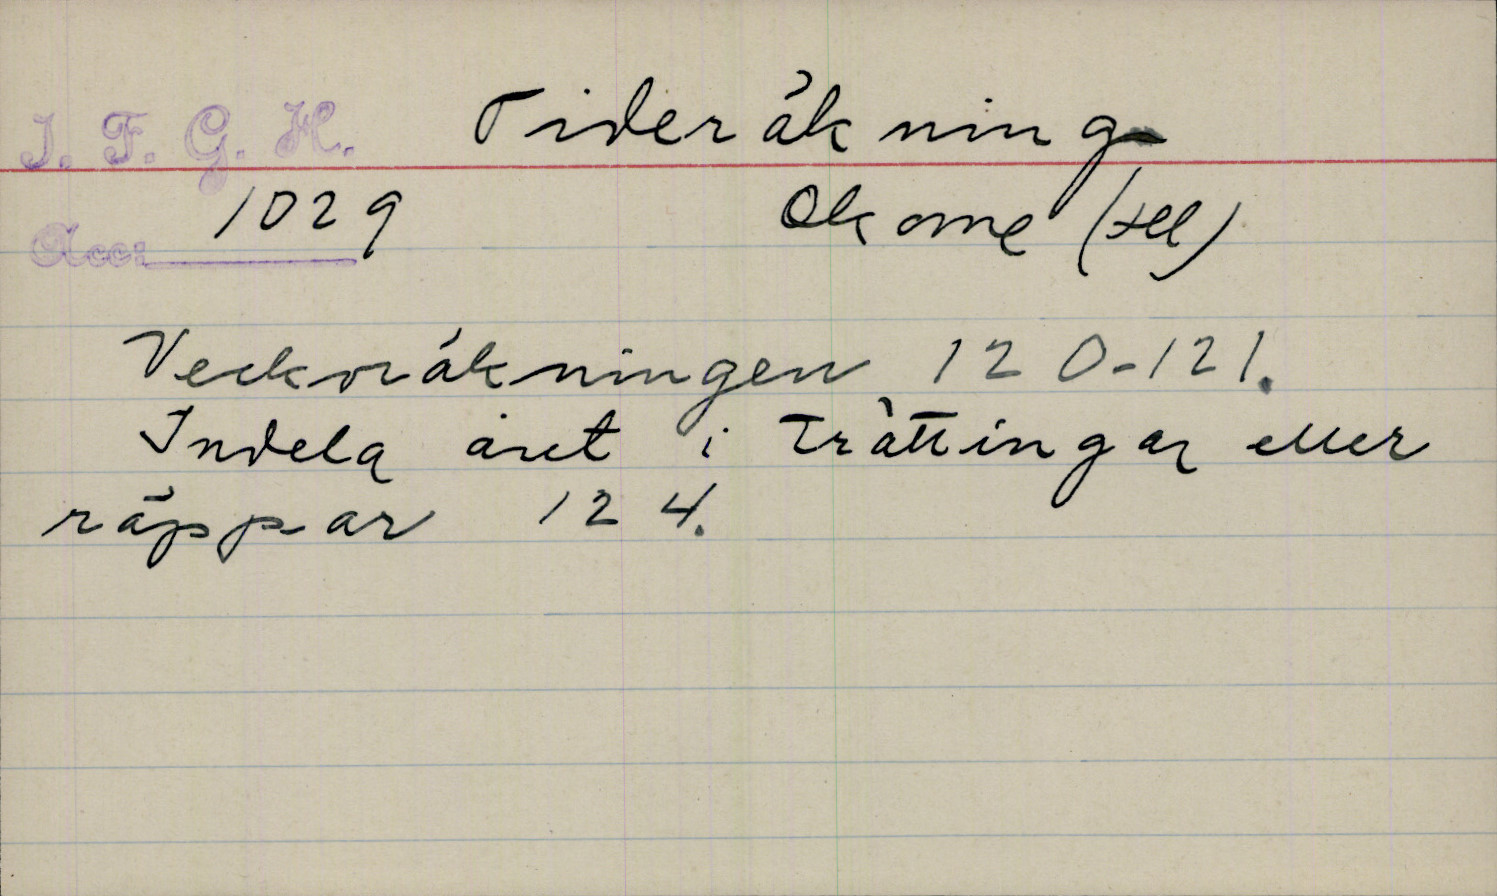 I. F. G. H. Tideräkning
Acc: 1029 Okome (Hll)
Veckoräkningen 120-121.
Indela året i trättingar eller
räppar 124.